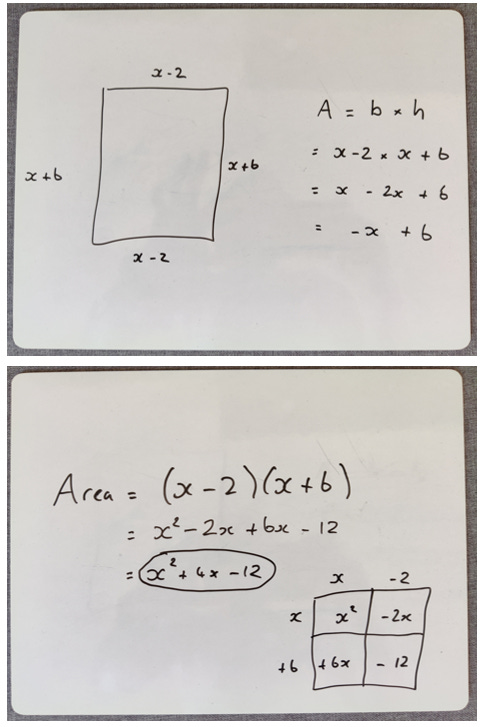 x-2
A = b × h
= x-2 × x + 6
x+6
x+6
= x - 2x + 6
= -x + 6
x-2
Area = (x-2)(x+6)
= x² - 2x + 6x - 12
= x² + 4x - 12
x -2
x x² -2x
+6 +6x -12